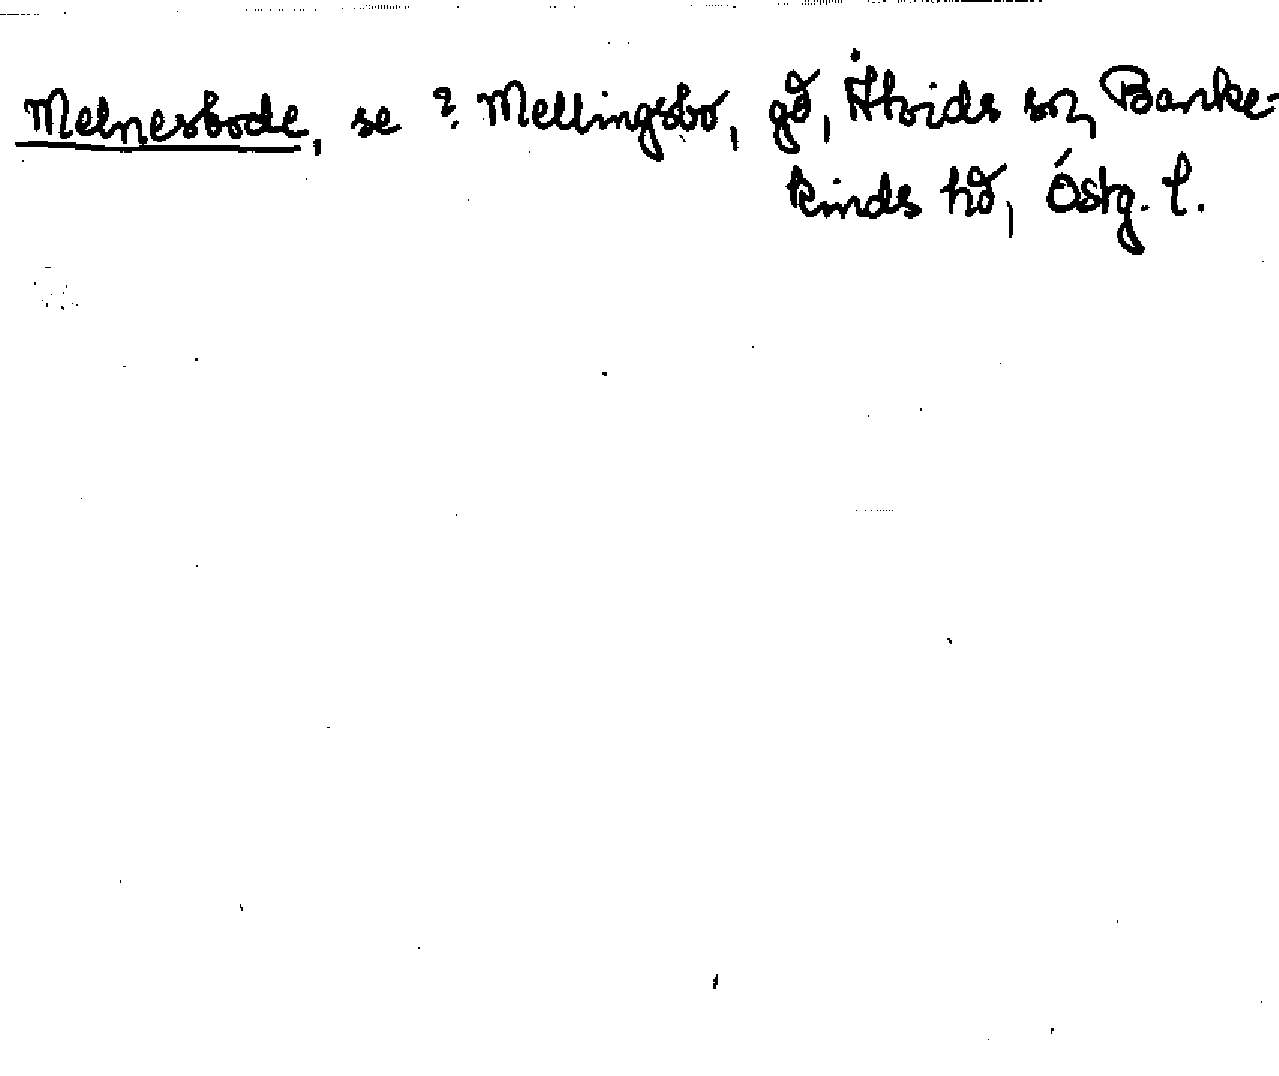 Melnesbode, se ? Mellingsbo, gd, Åtvids sn, Banke-
kinds hd, Östg. l.